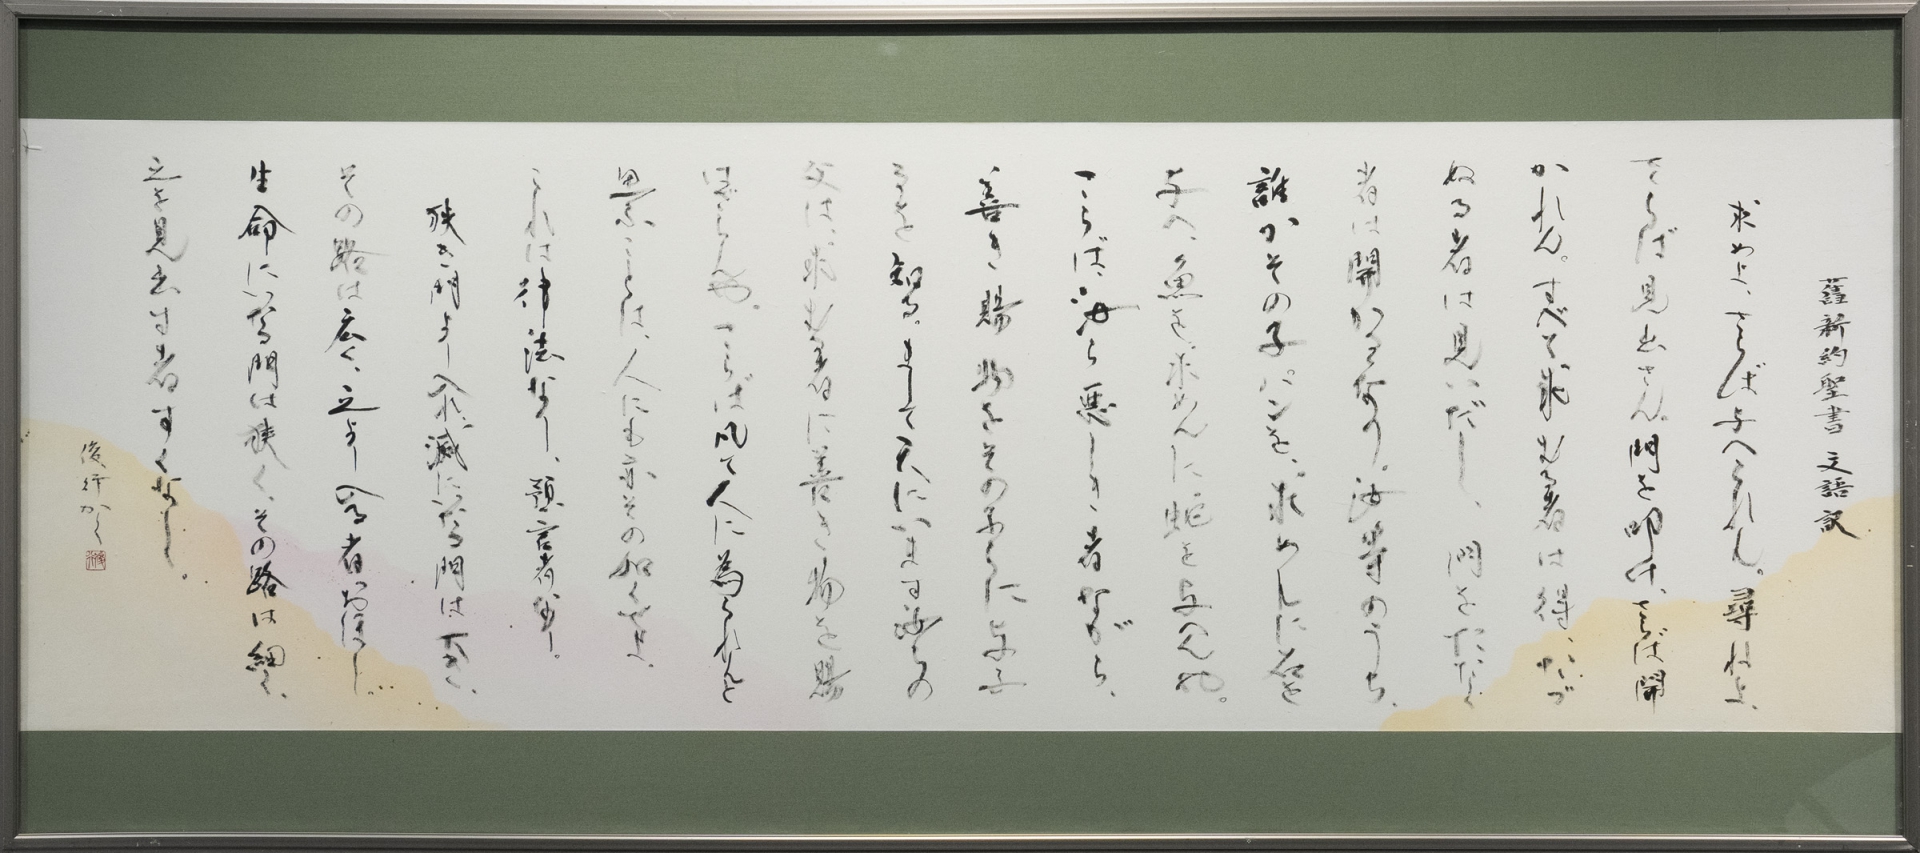 舊新約聖書 文語訳
求めよ、さらば与へられん。尋ねよ、
さらば見出さん。門を叩け、さらば開
かれん。すべて求むる者は得、たづ
ぬる者は見いだし、門をたたく
者は開かるるなり。汝等のうち、
誰かその子パンを、求めんに石を
与へ、魚を求めんに蛇を与へんや。
さらば、汝ら悪しき者ながら、
善き賜物をその子らに与ふ
るを知る。まして天にいます汝らの
父は、求むる者に善き物を賜
はざらんや。さらば凡て人に為られんと
思ふことは、人にも亦その如くせよ。
これは律法なり、預言者なり。
狭き門より入れ、滅にいたる門は大きく、
その路は広く、之より入る者おほし。
生命にいたる門は狭く、その路は細く、
之を見出す者すくなし。
俊 かく